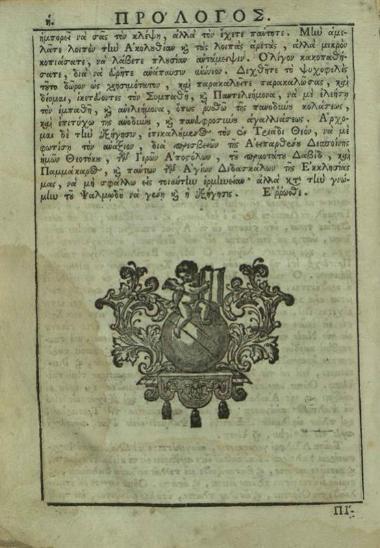 ή. ΠΡΟ'ΛΟΓΟΣ.
ἠμπορεῖ νὰ σᾶς τὸν κλέψῃ, ἀλλὰ τὸν ἔχετε πάντοτε. Μὴν ἀμε-
λᾶτε λοιπὸν τὴν Ἀκολυθίαν καὶ τὰς λοιπὰς ἀρετὰς, ἀλλὰ μικρὸν
κοπιάσατε, νὰ λάβετε πλυσίαν ἀντάμειψιν. Ὀλίγον κακοπαθή-
σατε, διὰ νὰ εὕρητε ἀνάπαυσιν αἰώνιον. Δεχθῆτε τὸ ψυχοφελὲς
τῦτο δῶρον ὡς χρησιμώτατον, καὶ παρακαλεῖτε παρακαλῶσας, καὶ
δέομαι, ἱκετεύοντες τὸν Συμπαθῆ, καὶ Πανελεήμονα, νὰ μὲ ἐλεήσῃ
τὸν ἐμπαθῆ, καὶ ἀνελεήμονα, ὅπως ῥυσθῶ τῆς πανωδίνυ κολάσεως,
καὶ ἐπιτύχω τῆς ἀνωδίνυ, καὶ ἀγαλλιάσεως. Ἄρχο-
μαι δὲ τὴν ἐξήγησιν, ἐπικαλέμενος τὸν ἐν Τριάδι Θεὸν, νὰ μὲ
φωτίσῃ τὸν ἀνάξιον, διὰ πρεσβειῶν τῆς Ἀειπαρθένυ Δεσποίνης
ἡμῶν Θεοτόκυ, τῶν Ἱερῶν Ἀποστόλων, τῦ Δαβὶδ, καὶ
Παμμάκαρος, καὶ πάντων τῶν Ἁγίων Διδασκάλων τῆς Ἐκκλησίας
μας, νὰ μὴ σφάλλω εἰς τοιαύτην ἑρμηνείαν· ἀλλὰ κατὰ τὴν γνώ-
μην τῦ Ψαλμῳδῦ νὰ γένῃ καὶ ἡ ἐξήγησις. Ἔρρωσθε.
ΠΙ-